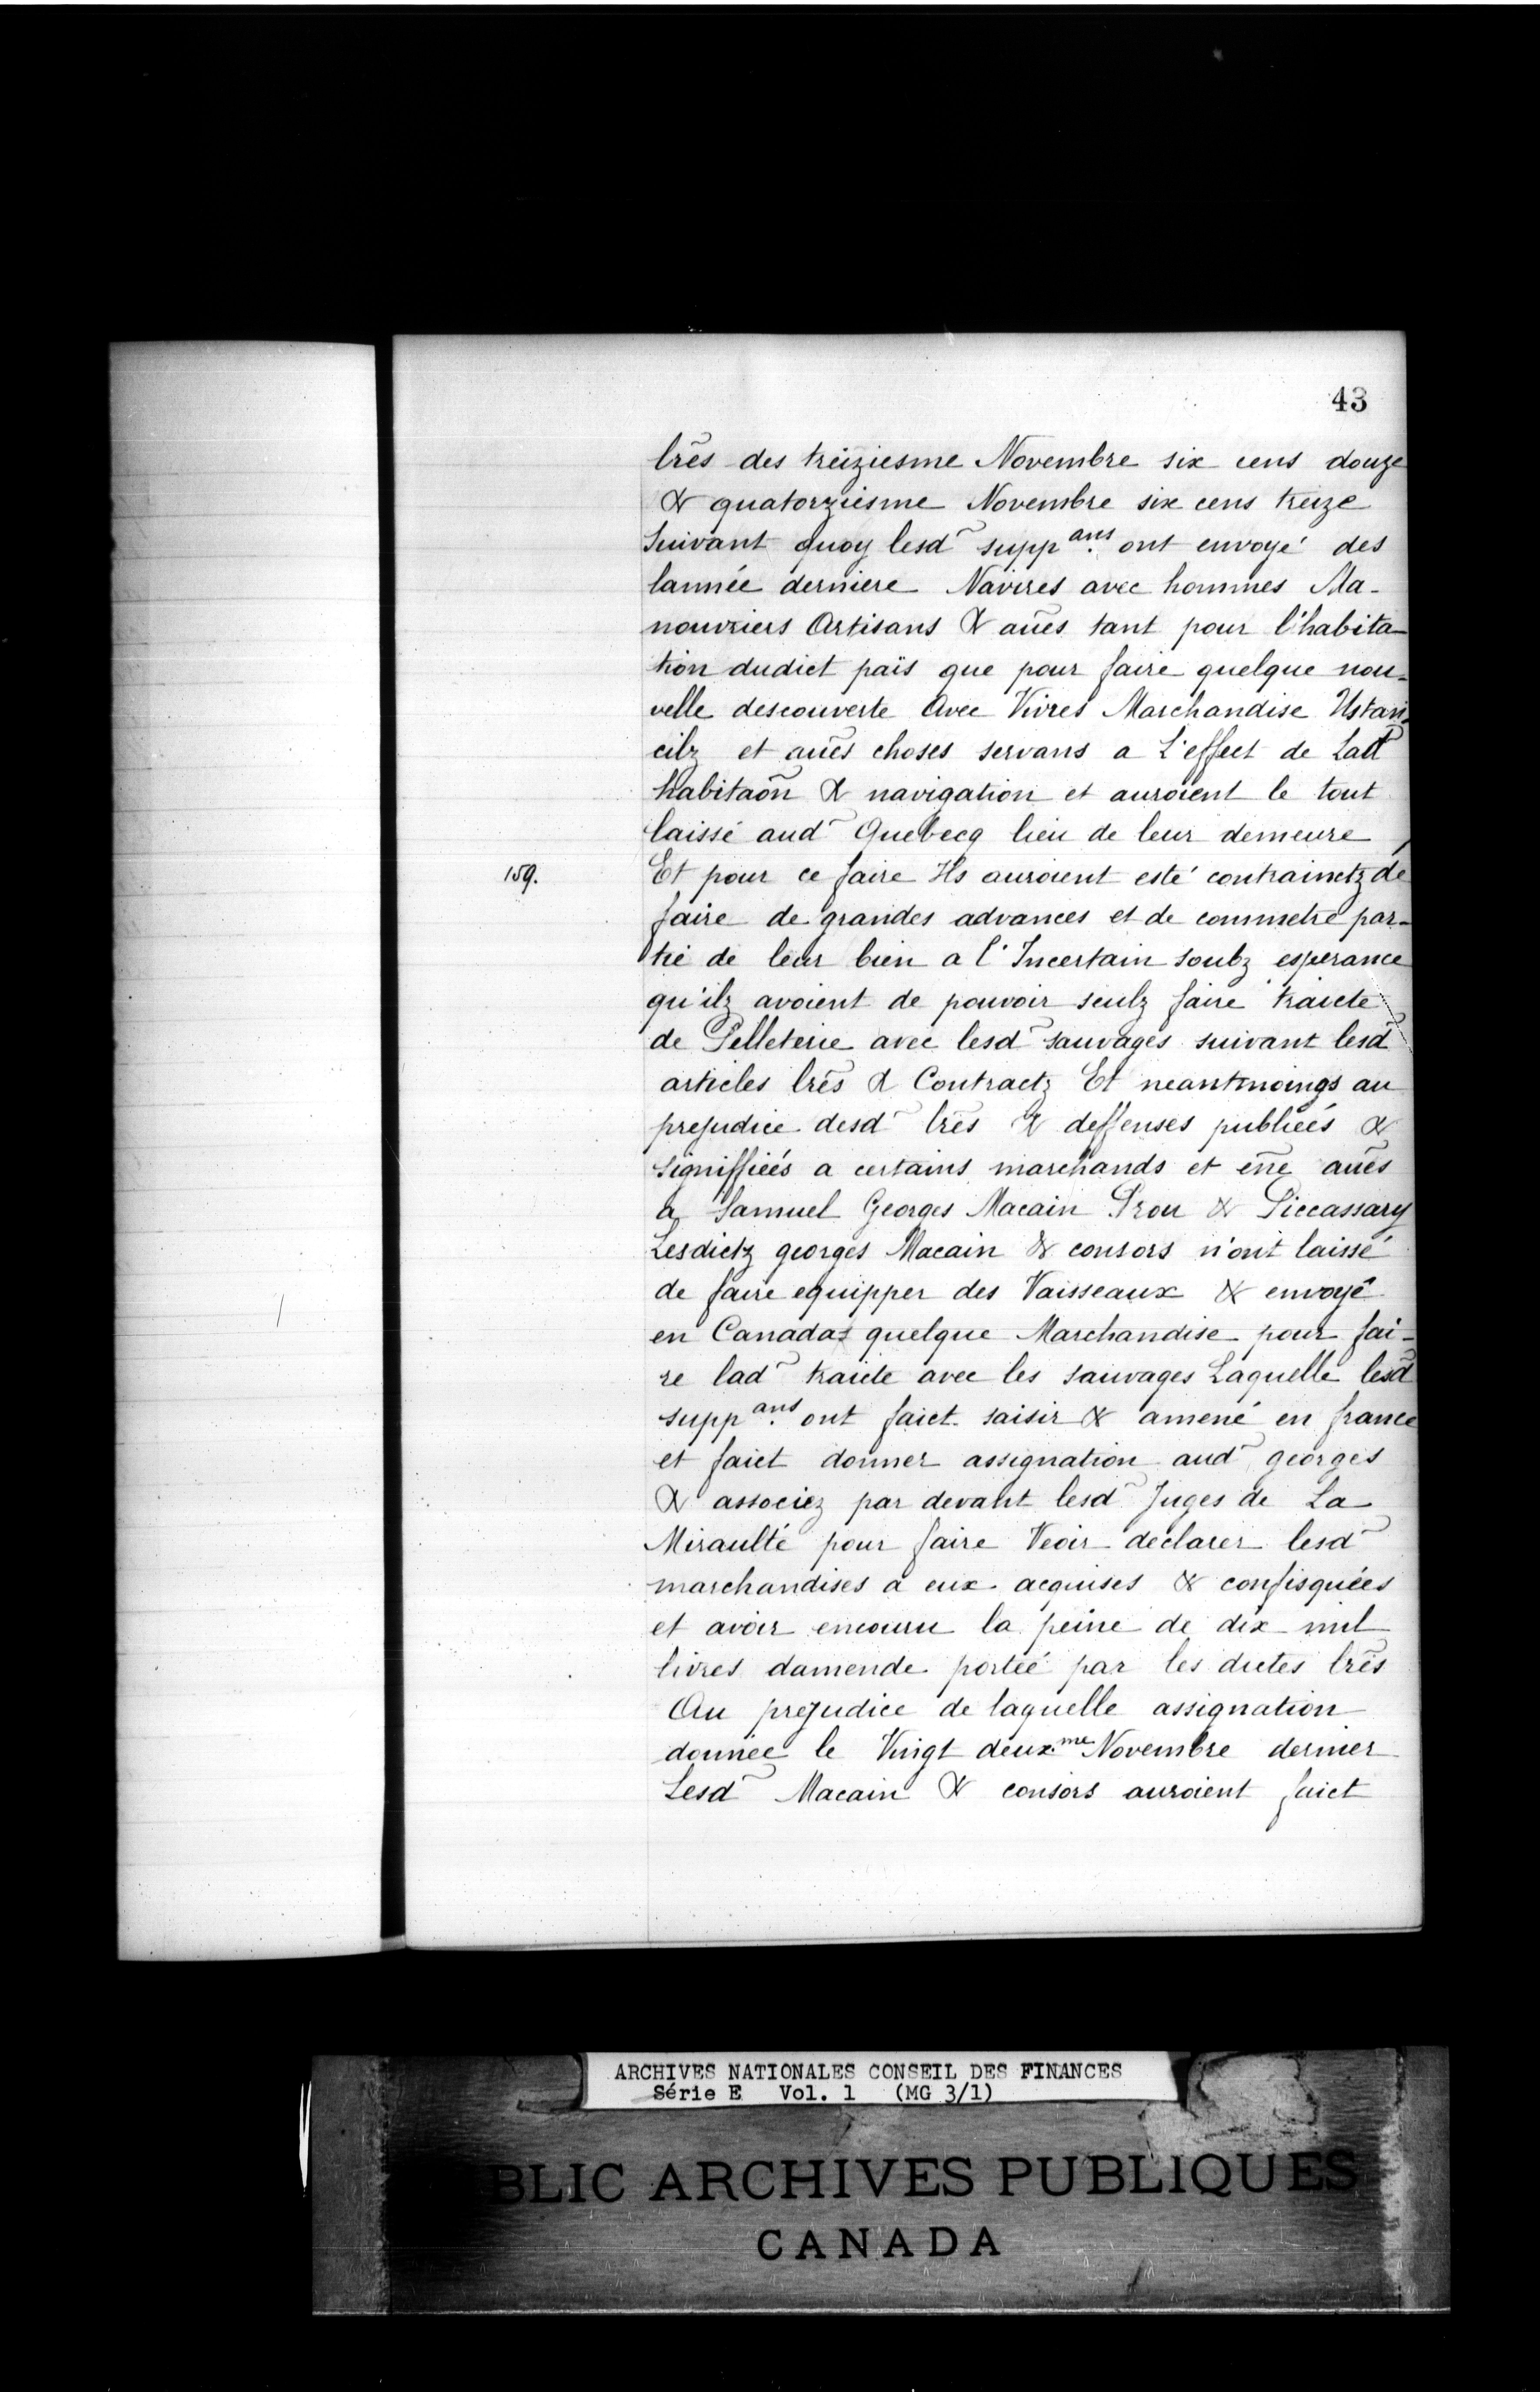 43
lrẽs des treiziesme Novembre six cens douze
& quatorziesme Novembre six cens treize
Suivant quoy lesd̃ suppans. ont envoyé des
lannée derniere Navires avec hommes Ma-
nouvriers Artisans & aũes tant pour l'habita-
tion dudict païs que pour faire quelque nou-
velle descouverte Avec Vivres Marchandise Ustan-
cilz et aũes choses servans a L'effect de Lad̃
habitaõn & navigation et auroient le tout
laissé aud̃ Quebecq lieu de leur demeure
159. Et pour ce faire Ils auroient esté contrainctz de
faire de grandes advances et de commetre par-
tie de leur bien a l'Incertain soubz esperance
qu'ilz avoient de pouvoir seulz faire traicte
de Pelleterie avec lesd̃ sauvages suivant lesd̃
articles lrẽs & Contractz Et neantmoings au
prejudice desd̃ lrẽs & deffenses publiéés &
signiffiéés a certains marchands et eñe aũes
a Samuel Georges Macain Prou & Piccassary
Lesdictz georges Macain & consors n'ont laissé
de faire equipper des Vaisseaux & envoyé
en Canadas quelque Marchandise pour fai-
re lad̃ traicte avec les sauvages Laquelle lesd̃
suppans. ont faict saisir & amené en france
et faict donner assignation aud̃ georges
& associez par devant lesd̃ Juges de La
Miraulté pour faire Veoir declarer lesd̃
marchandises a eux acquises & confisquées
et avoir encouru la peine de dix mil
livres damende portéé par les dictes lrẽs
Au prejudice de laquelle assignation
donnée le Vingt deux.me Novembre dernier
Lesd̃ Macain & consors auroient faict
ARCHIVES NATIONALES CONSEIL DES FINANCES
Série E Vol. 1 (MG 3/1)
BLIC ARCHIVES PUBLIQUES
CANADA